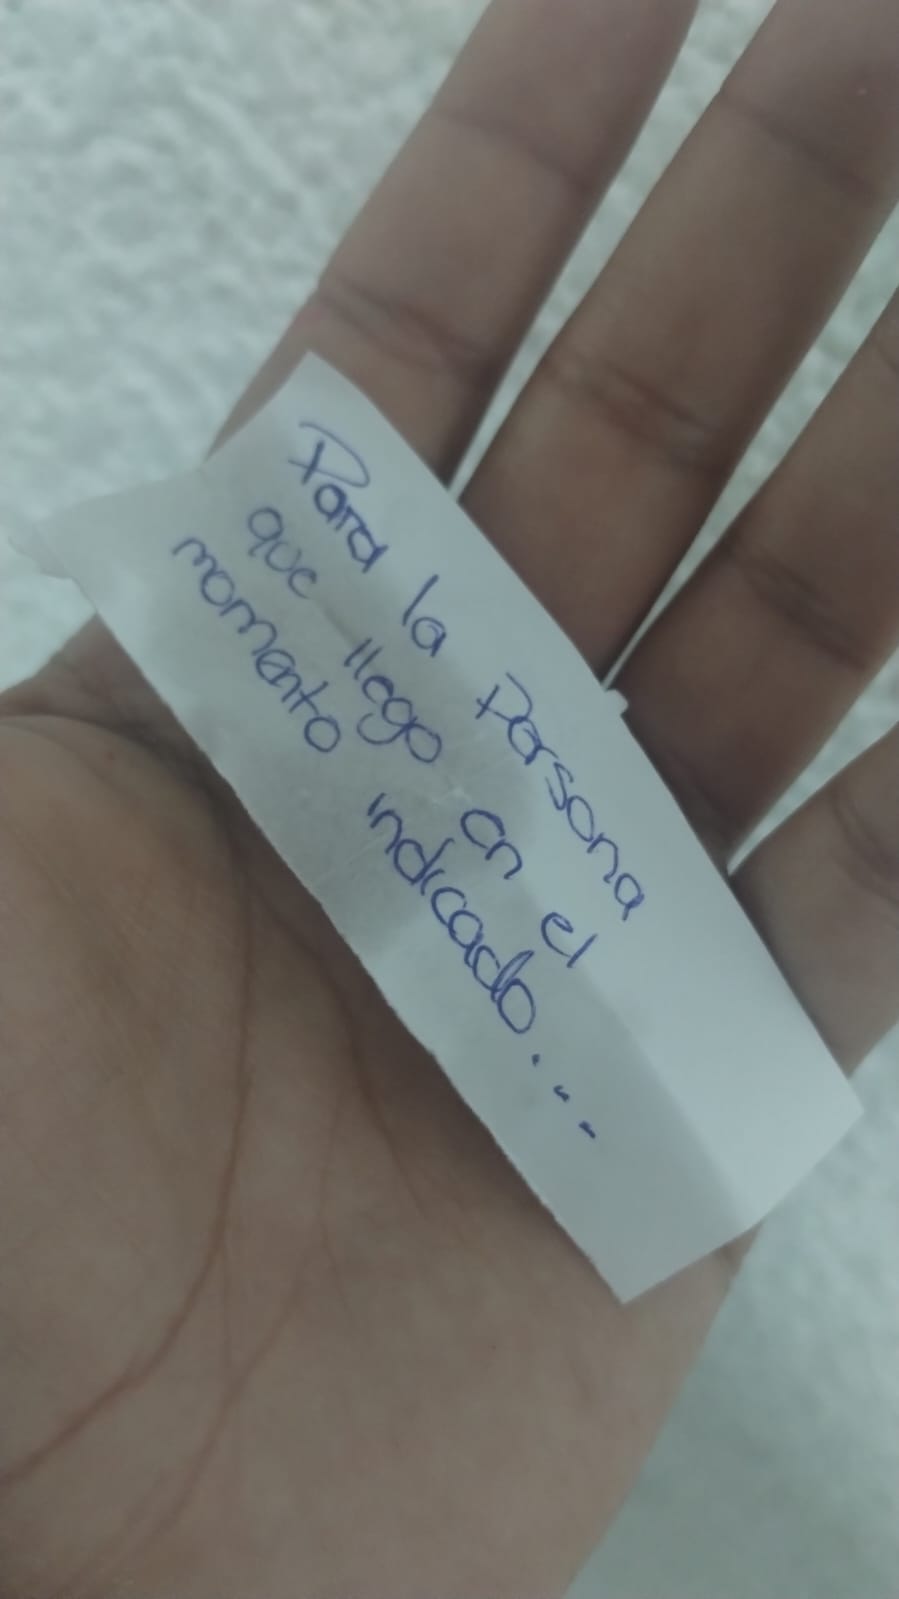 Para la Persona
que llego en el
momento indicado...